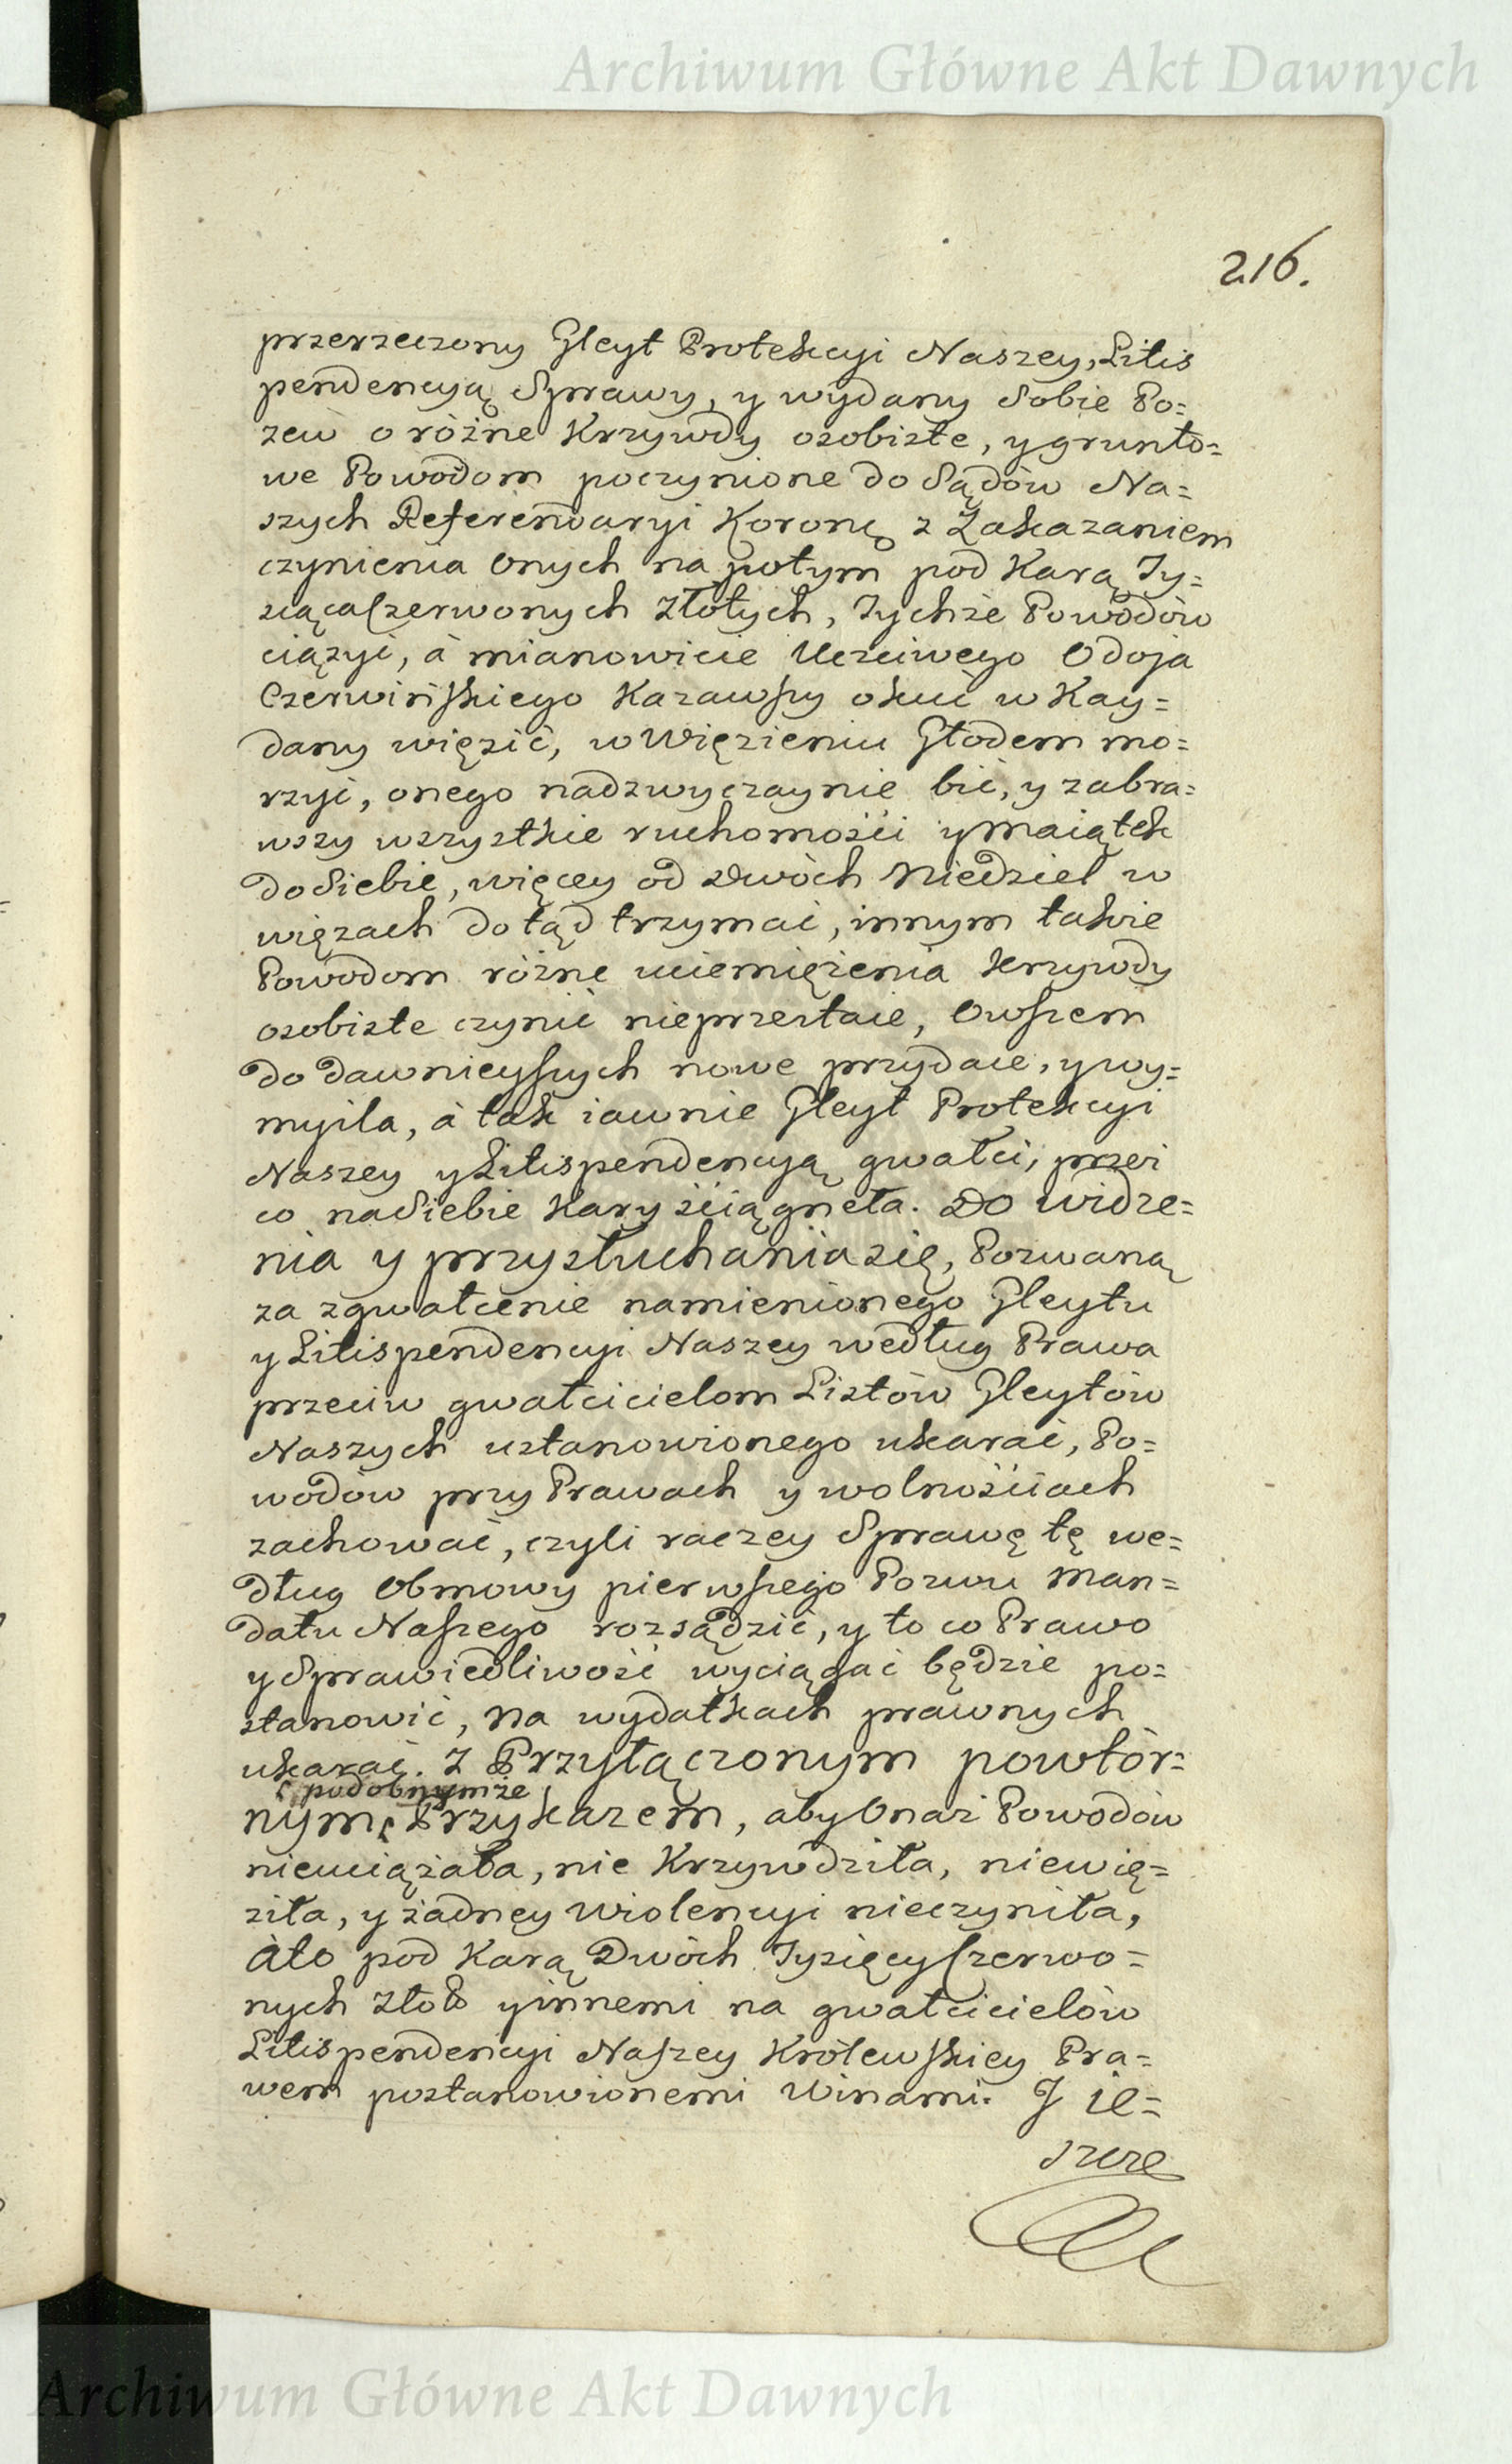 Archiwum Główne Akt Dawnych
216.
przerzeczony Gleyt Protekcyi Naszey, Litis
pendencyą Sprawy, y wydany Sobie Po=
zew o różne Krzywdy osobiste, y grunto=
we Powodom poczynione do Sądów Na=
szych Referendaryi Koronę z Zakazaniem
czynienia Onych na potym pod Karą Ty=
siąca Czerwonych Złotych, Tychże Powodów
ciążyć, à mianowicie Uczciwego Odoja
Czerwińskiego Kazawszy okuć w Kay=
dany więzić, w Więzieniu Głodem mo=
rzyć, onego nadzwyczaynie bić, y zabra=
wszy wszystkie ruchomości y Maiątek
do Siebie, więcey od Dwóch Niedziel w
więzach dotąd trzymać, innym także
Powodom różne uciemiężenia krzywdy
osobiste czynić nieprzestaie, Owszem
do dawnieyszych nowe przydaie, y wy=
myśla, à tak iawnie Gleyt Protekcyi
Naszey y Litispendencyą gwałci, przez
co na Siebie Kary ściągneła. Do widze=
nia y przysłuchania się, Pozwaną
za zgwałcenie namienionego Gleytu
y Litispendencyi Naszey według Prawa
przeciw gwałcicielom Listów Gleytów
Naszych ustanowionego ukarać, Po=
wodów przy Prawach y wolnościach
zachować, czyli raczey Sprawę tę we=
dług Obmowy pierwszego Pozwu Man=
datu Naszego rozsądzić, y to co Prawo
y Sprawiedliwość wyciągać będzie po=
stanowić, Na wydatkach prawnych
ukarać. Z Przyłączonym powtór=
podobnymże
nym Przykazem, aby Onaż Powodów
nieuciążała, nie Krzywdziła, niewię=
ziła, y żadney Wiolencyi nieczyniła,
Ato pod Karą Dwóch Tysięcy Czerwo=
nych Zło y innemi na gwałcicielów
Litispendencyi Naszey Królewskiey Pra=
wem postanowionemi Winami. J ie=
szcze
Archiwum Główne Akt Dawnych